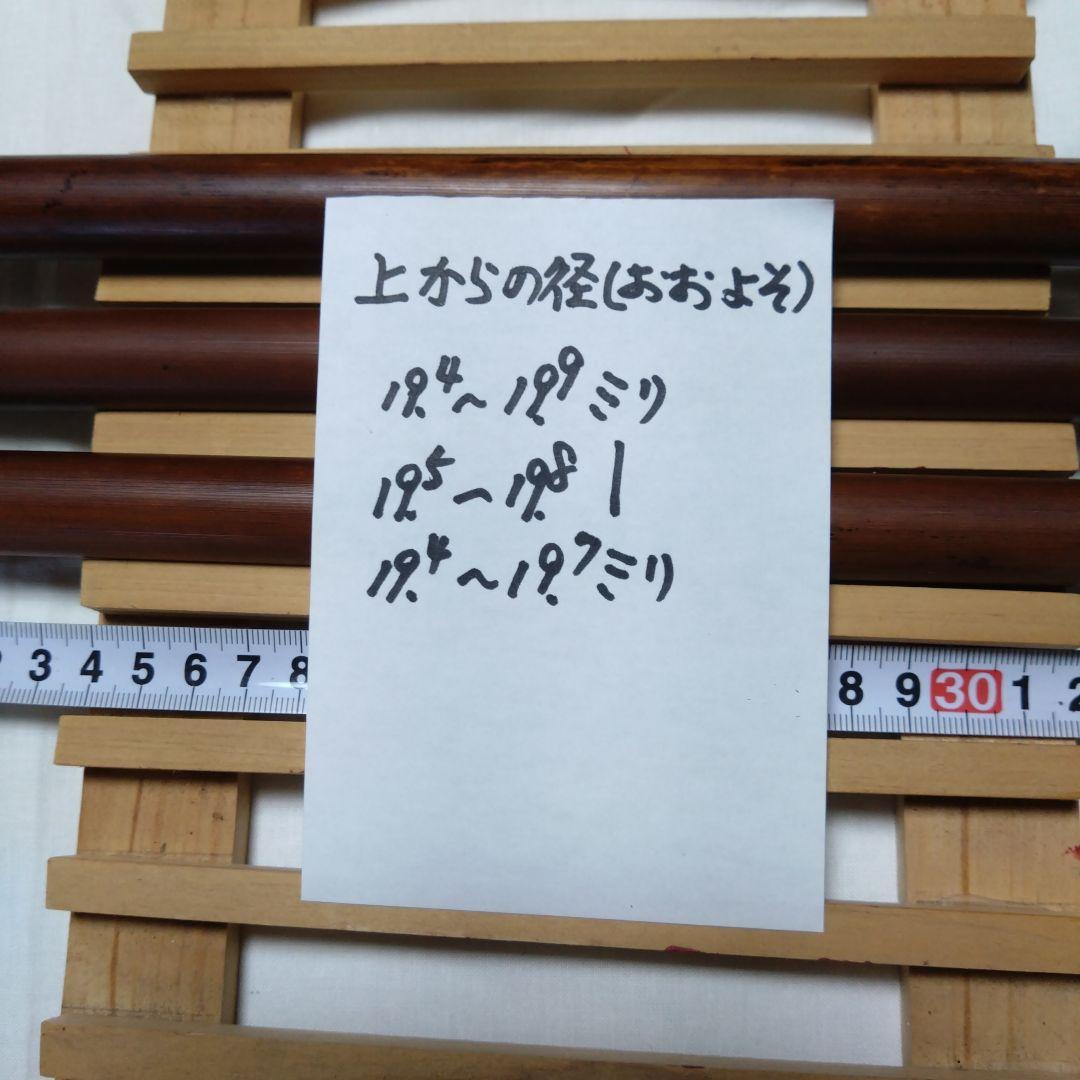 上からの径(おおよそ)
19.4〜19.9ミリ
19.5〜19.8 |
19.4〜19.7ミリ
3 4 5 6 7 8 8 9 30 1 2